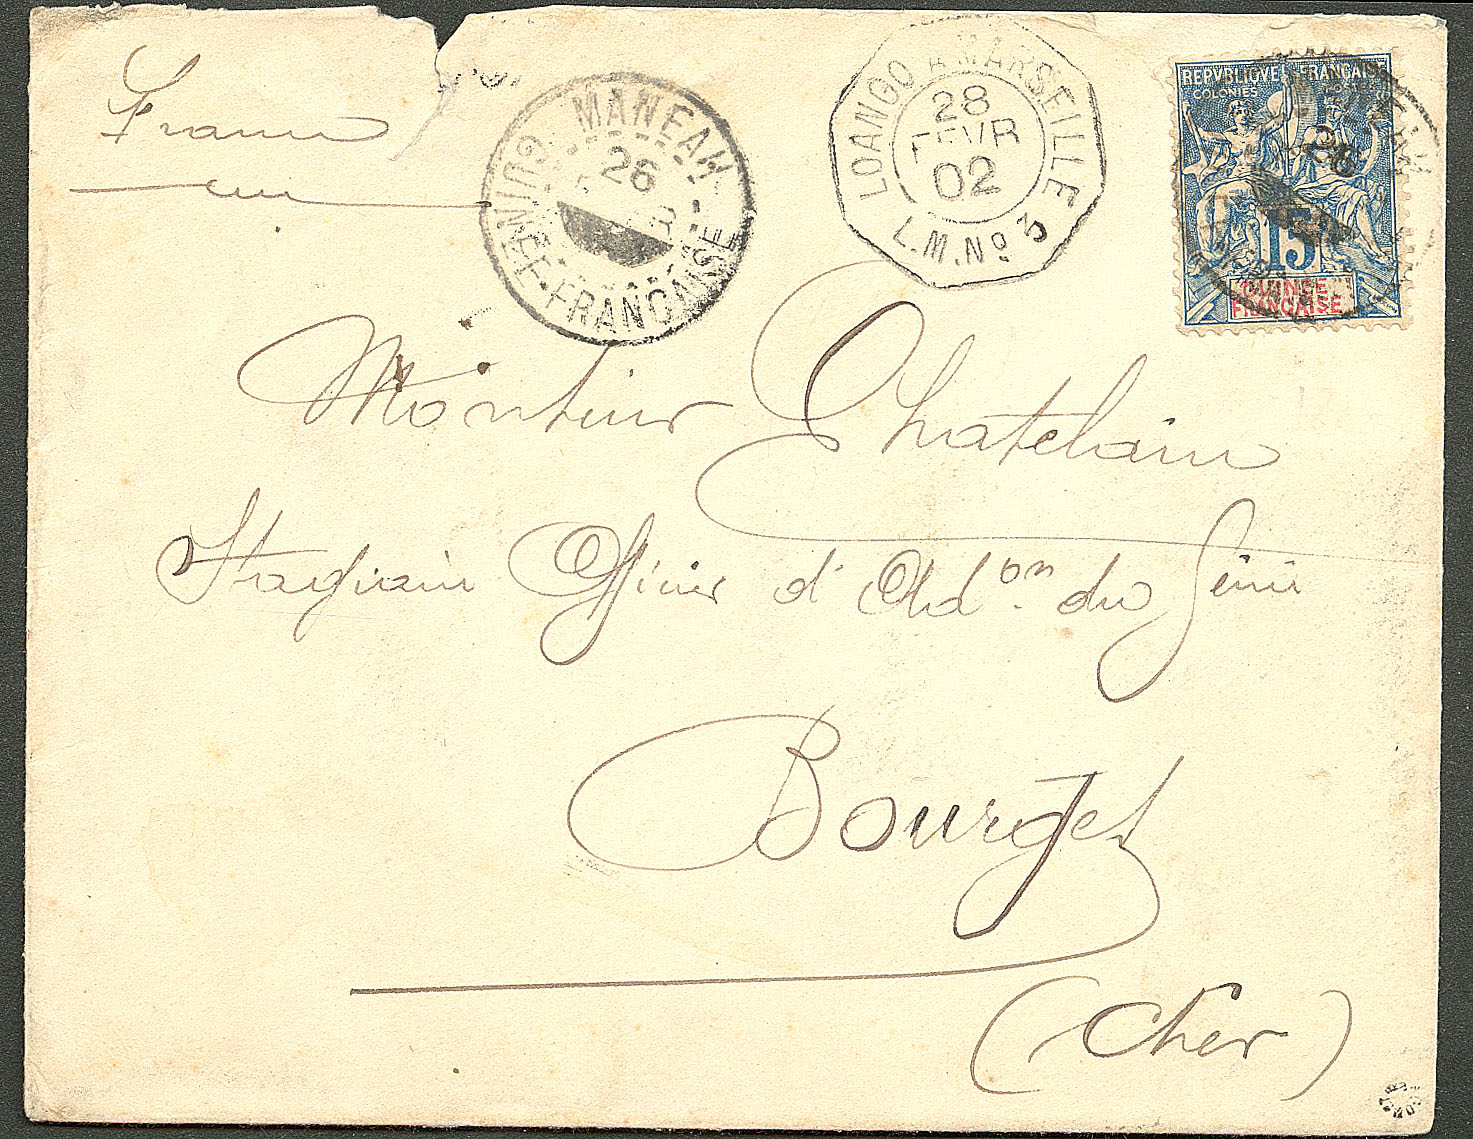 France
MANEAH
26
GUINÉE-FRANÇAISE
LOANGO A MARSEILLE
28
FEVR
02
L.M.No 3
REPVBLIQVE FRANÇAISE
COLONIES POSTES
15
GUINÉE
FRANÇAISE
26
Monsieur Chatelain
Stagiaire Officier d'Adon. du Génie
Bourges
(Cher)